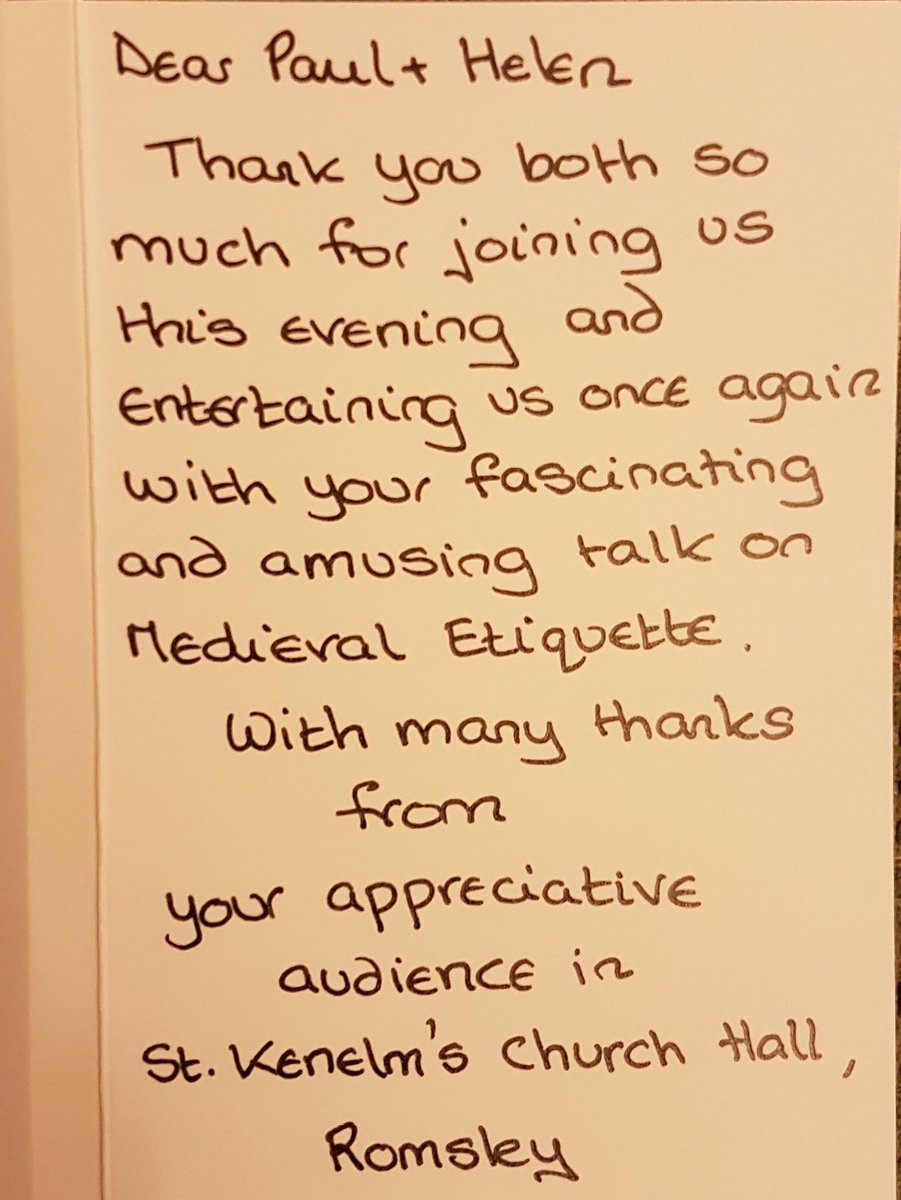 Dear Paul + Helen
Thank you both so
much for joining us
this evening and
entertaining us once again
with your fascinating
and amusing talk on
Medieval Etiquette.
With many thanks
from
your appreciative
audience in
St. Kenelm's Church Hall,
Romsley